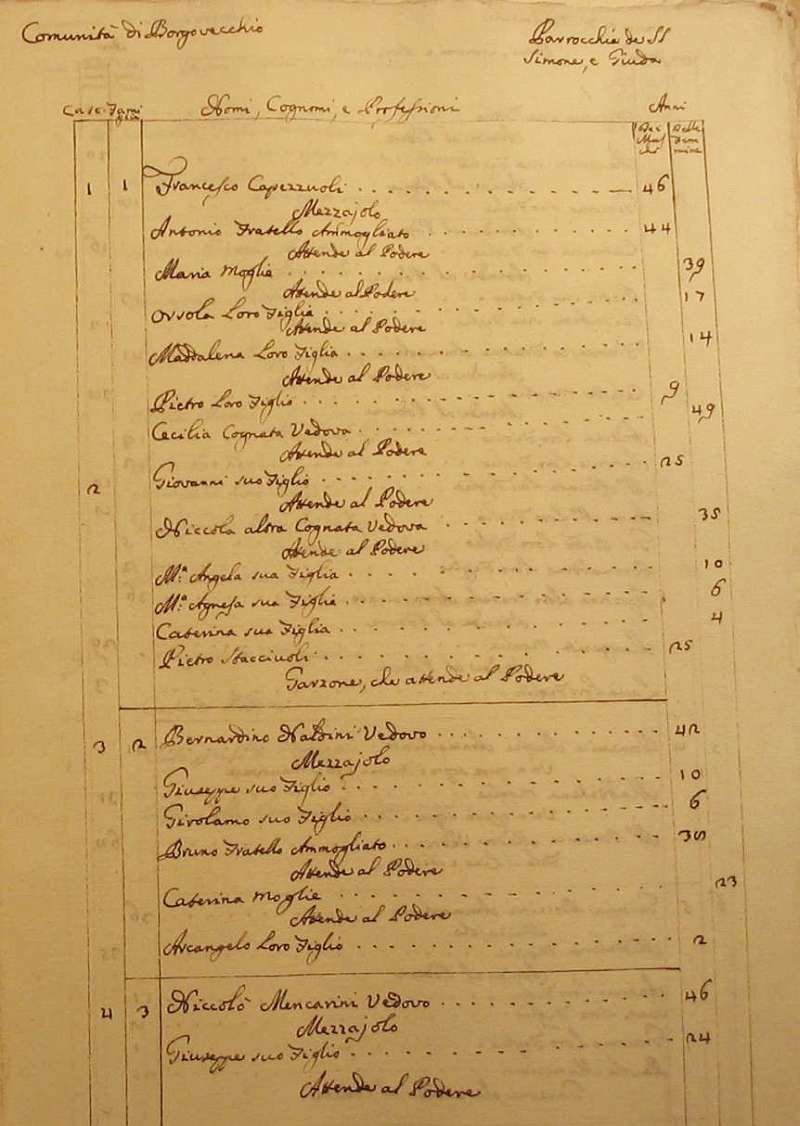 Comunità di Borgovecchio
Parrocchia de SS
Simone, e Giuda
Case Fami
glie
Nomi, Cognomi, e Professioni
Anni
Dei Mas
chi
Delle Fem
mine
1 1 Francesco Capezzuoli 46
Mezzajolo
Antonio Fratello Ammogliato 44
Attende al Podere
Maria Moglie 39
Attende al Podere
Orsola Loro Figlia 17
Attende al Podere
Maddalena Loro Figlia 14
Attende al Podere
Pietro Loro Figlio 9
Cecilia Cognata Vedova 49
Attende al Podere
2 Giovanni suo Figlio 25
Attende al Podere
Niccola altra Cognata Vedova 35
Attende al Podere
M.a Angela sua Figlia 10
M.a Agnesa sua Figlia 6
Caterina sua Figlia 4
Pietro Stacciuoli 25
Garzone, che attende al Podere
3 2 Bernardino Naldini Vedovo 42
Mezzajolo
Giuseppe suo Figlio 10
Girolamo suo Figlio 6
Bruno Fratello Ammogliato 30
Attende al Podere
Caterina Moglie 23
Attende al Podere
Arcangelo Loro Figlio 2
4 3 Niccolò Mencarini Vedovo 46
Mezzajolo
Giuseppe suo Figlio 24
Attende al Podere